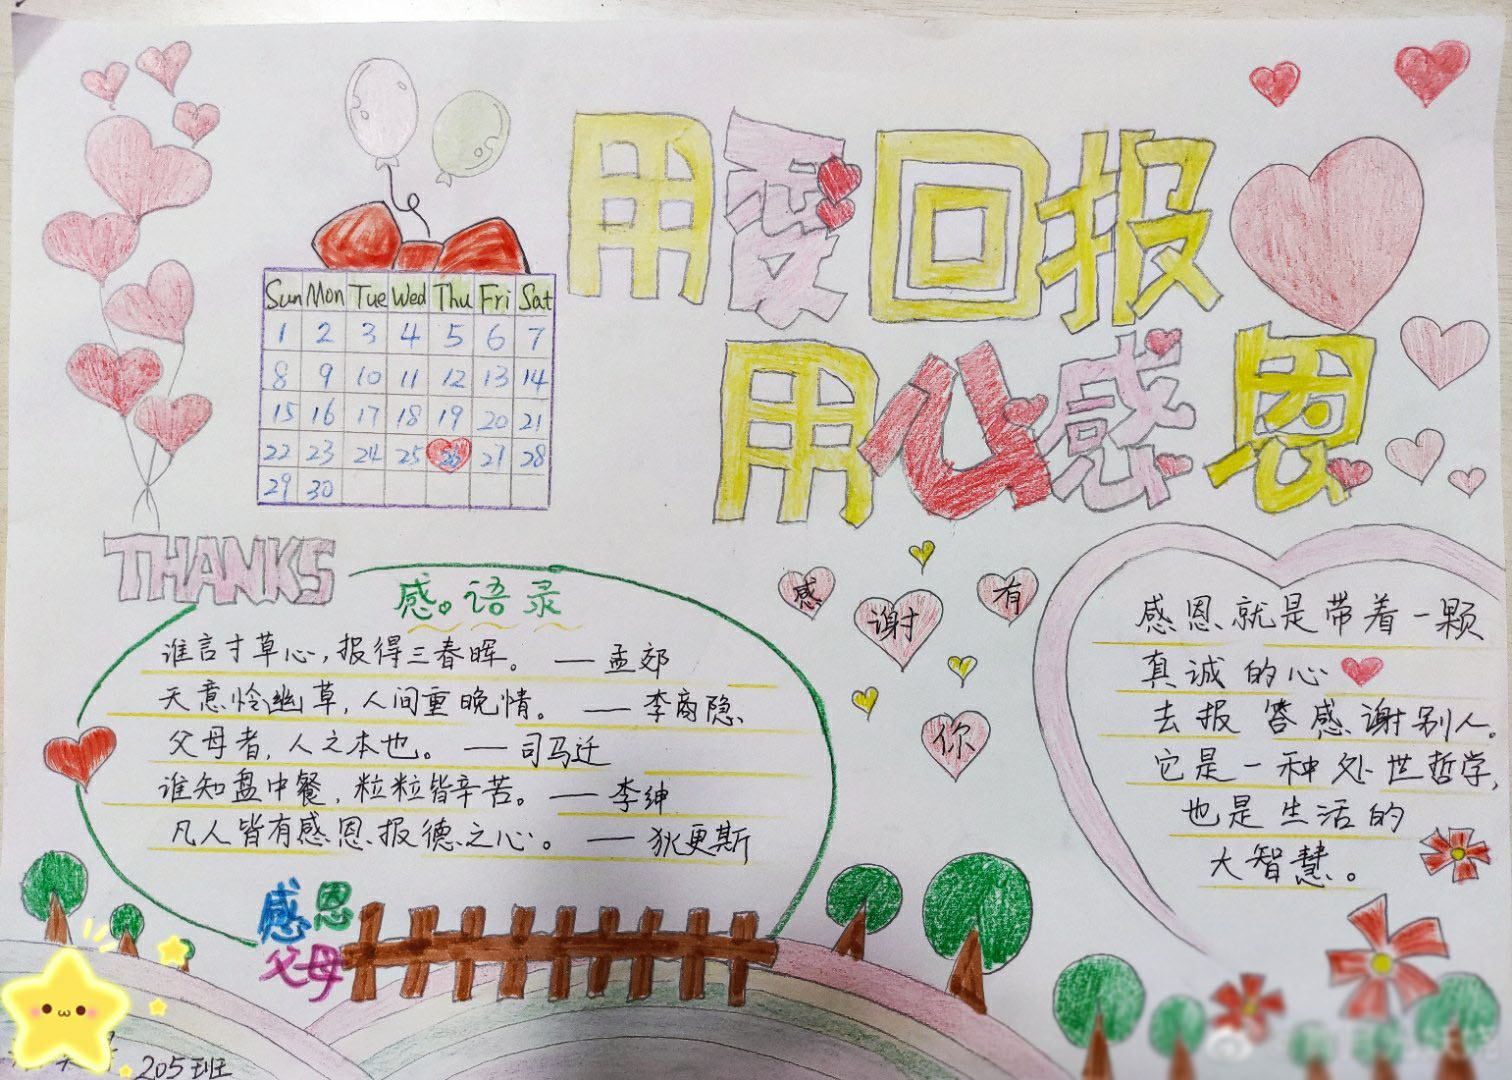 用爱回报
用心感恩
Sun Mon Tue Wed Thu Fri Sat
1 2 3 4 5 6 7
8 9 10 11 12 13 14
15 16 17 18 19 20 21
22 23 24 25 26 27 28
29 30
THANKS
感。语录
谁言寸草心，报得三春晖。 — 孟郊
天意怜幽草，人间重晚情。 — 李商隐
父母者，人之本也。 — 司马迁
谁知盘中餐，粒粒皆辛苦。 — 李绅
凡人皆有感恩报德之心。 — 狄更斯
感恩
父母
感谢有
你
感恩就是带着一颗
真诚的心
去报答感谢别人。
它是一种处世哲学，
也是生活的
大智慧。
205班